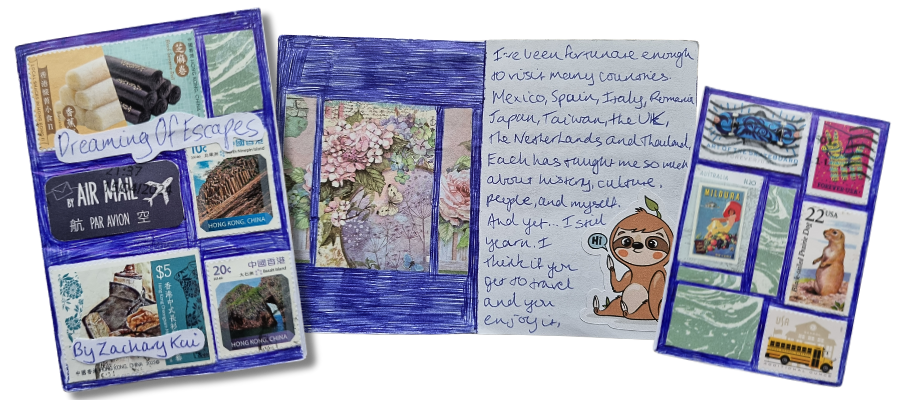 芝麻卷
Dreaming Of Escapes
BY AIR MAIL
航 PAR AVION 空
10c
HONG KONG, CHINA
$5
20c 中國香港
HONG KONG, CHINA
By Zachary Kui
I've been fortunate enough
to visit many countries.
Mexico, Spain, Italy, Romania
Japan, Taiwan, the UK,
the Netherlands and Thailand,
Each has taught me so much
about history, culture,
people, and myself.
And yet... I still
yearn. I
think if you
get to travel
and you
enjoy it,
Hi
FOREVER USA
AUSTRALIA
MILDURA
22 USA
Black-tailed Prairie Dog
USA